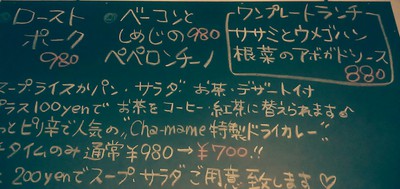 ロースト
ポーク
980
ベーコンと
しめじの980
ペペロンチーノ
ワンプレートランチ
ササミとウメゴハン
根菜のアボガドソース
880
スープ ライスかパン・サラダ お茶・デザート付
プラス100yenで お茶をコーヒー・紅茶に替えられます
っとピリ辛で人気の"Cha-mame 特製ドライカレー"
チタイムのみ 通常¥980→¥700!!
200yenでスープ・サラダご用意致します♡